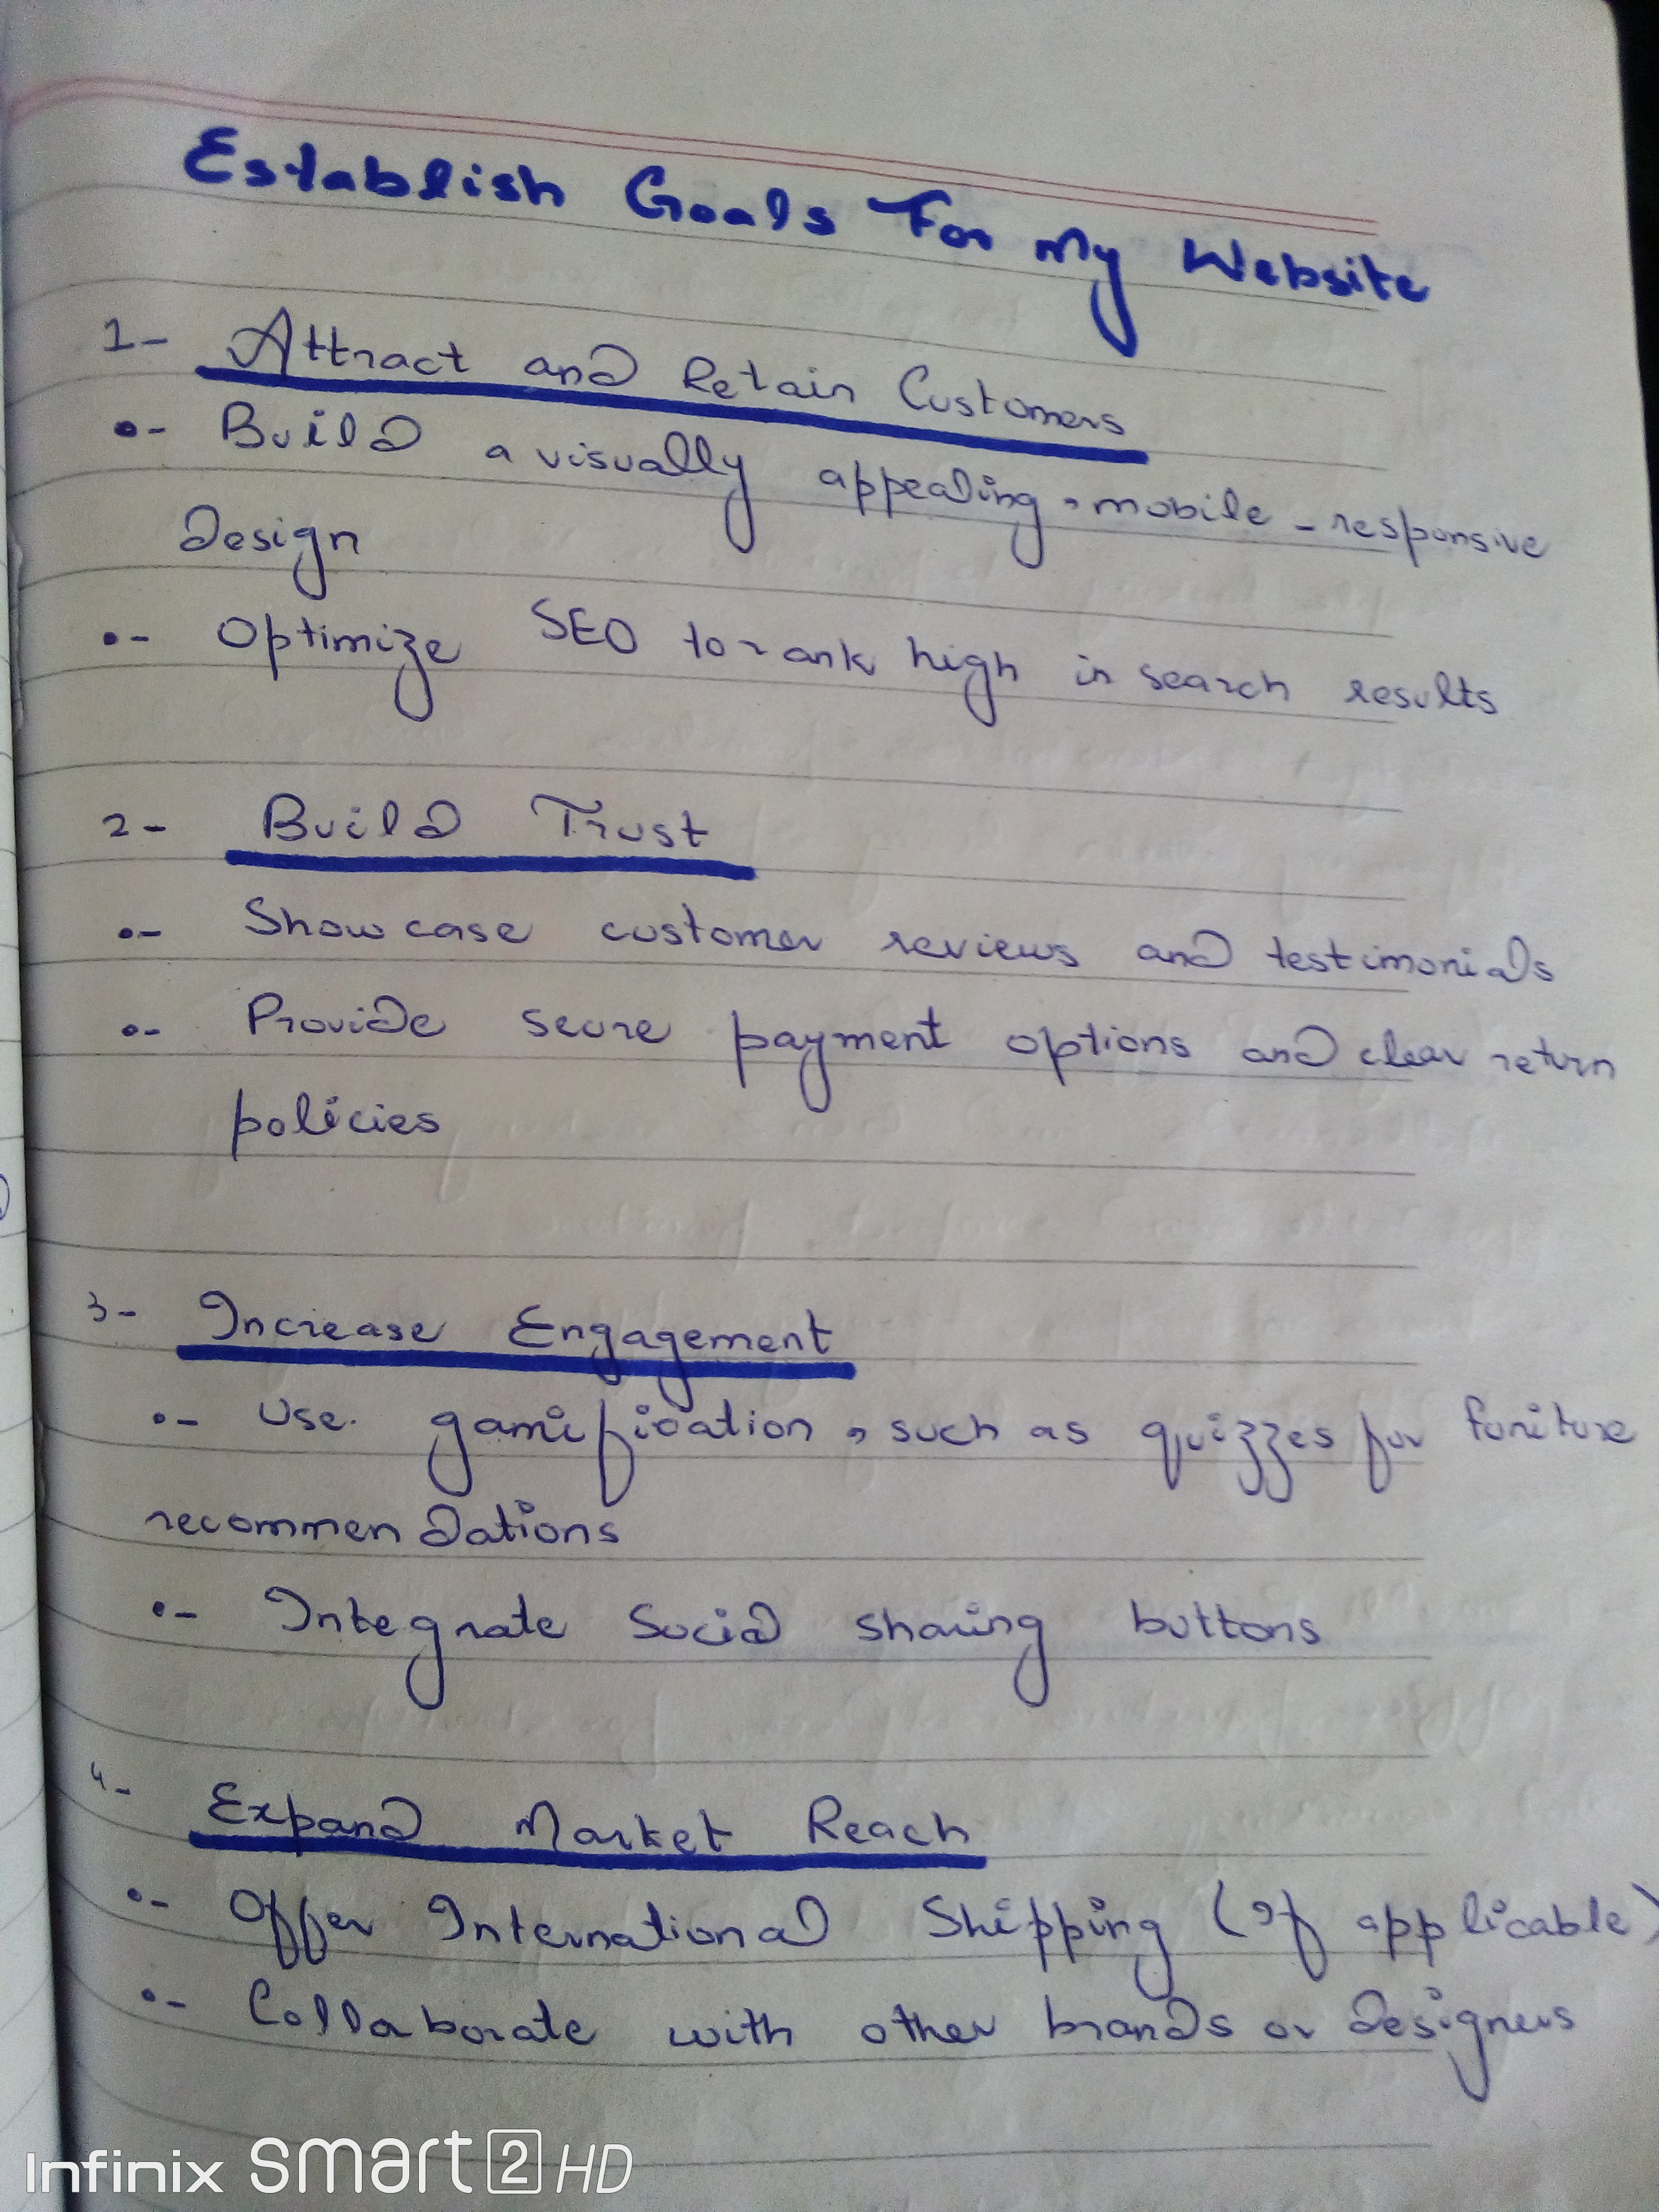 Establish Goals For My Website
1- Attract and Retain Customers
•- Build a visually appealing, mobile-responsive
design
•- Optimize SEO to rank high in search results
2- Build Trust
•- Showcase customer reviews and testimonials
•- Provide secure payment options and clear return
policies
3- Increase Engagement
•- Use gamification, such as quizzes for funiture
recommendations
•- Integrate Social sharing buttons
4- Expand Market Reach
•- Offer International Shipping (If applicable)
•- Collaborate with other brands or designers
Infinix smart 2 HD